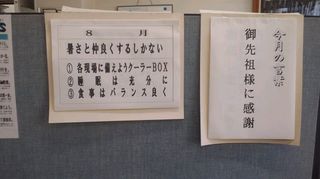 8月
暑さと仲良くするしかない
①各現場に備えようクーラーBOX
②睡眠は充分に
③食事はバランス良く
今月の言葉
御先祖様に感謝